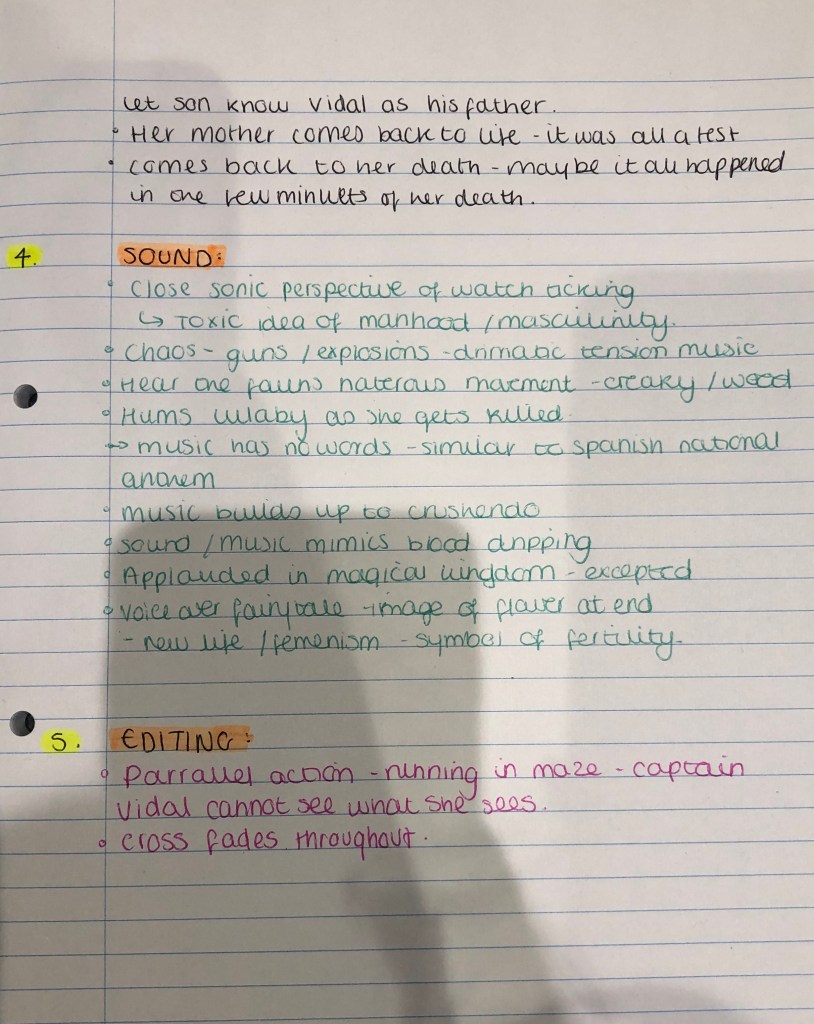 let son know Vidal as his father.
• Her mother comes back to life - it was all a test
• comes back to her death - maybe it all happened
in the few minuets of her death.
4. SOUND:
• Close sonic perspective of watch ticking
↳ Toxic idea of manhood / masculinity.
• Chaos - guns / explosions - dramatic tension music
• Hear the fauns naterous movement - creaky / wood
• Hums lulaby as she gets killed.
→ music has no words - similar to spanish national
anthem
• music builds up to crushendo
• sound / music mimics blood dripping
• Applauded in magical kingdom - excepted
• voice over fairytale - image of flower at end
- new life / femenism - symbol of fertility.
5. EDITING:
• Parrallel action - running in maze - captain
Vidal cannot see what she sees.
• cross fades throughout.